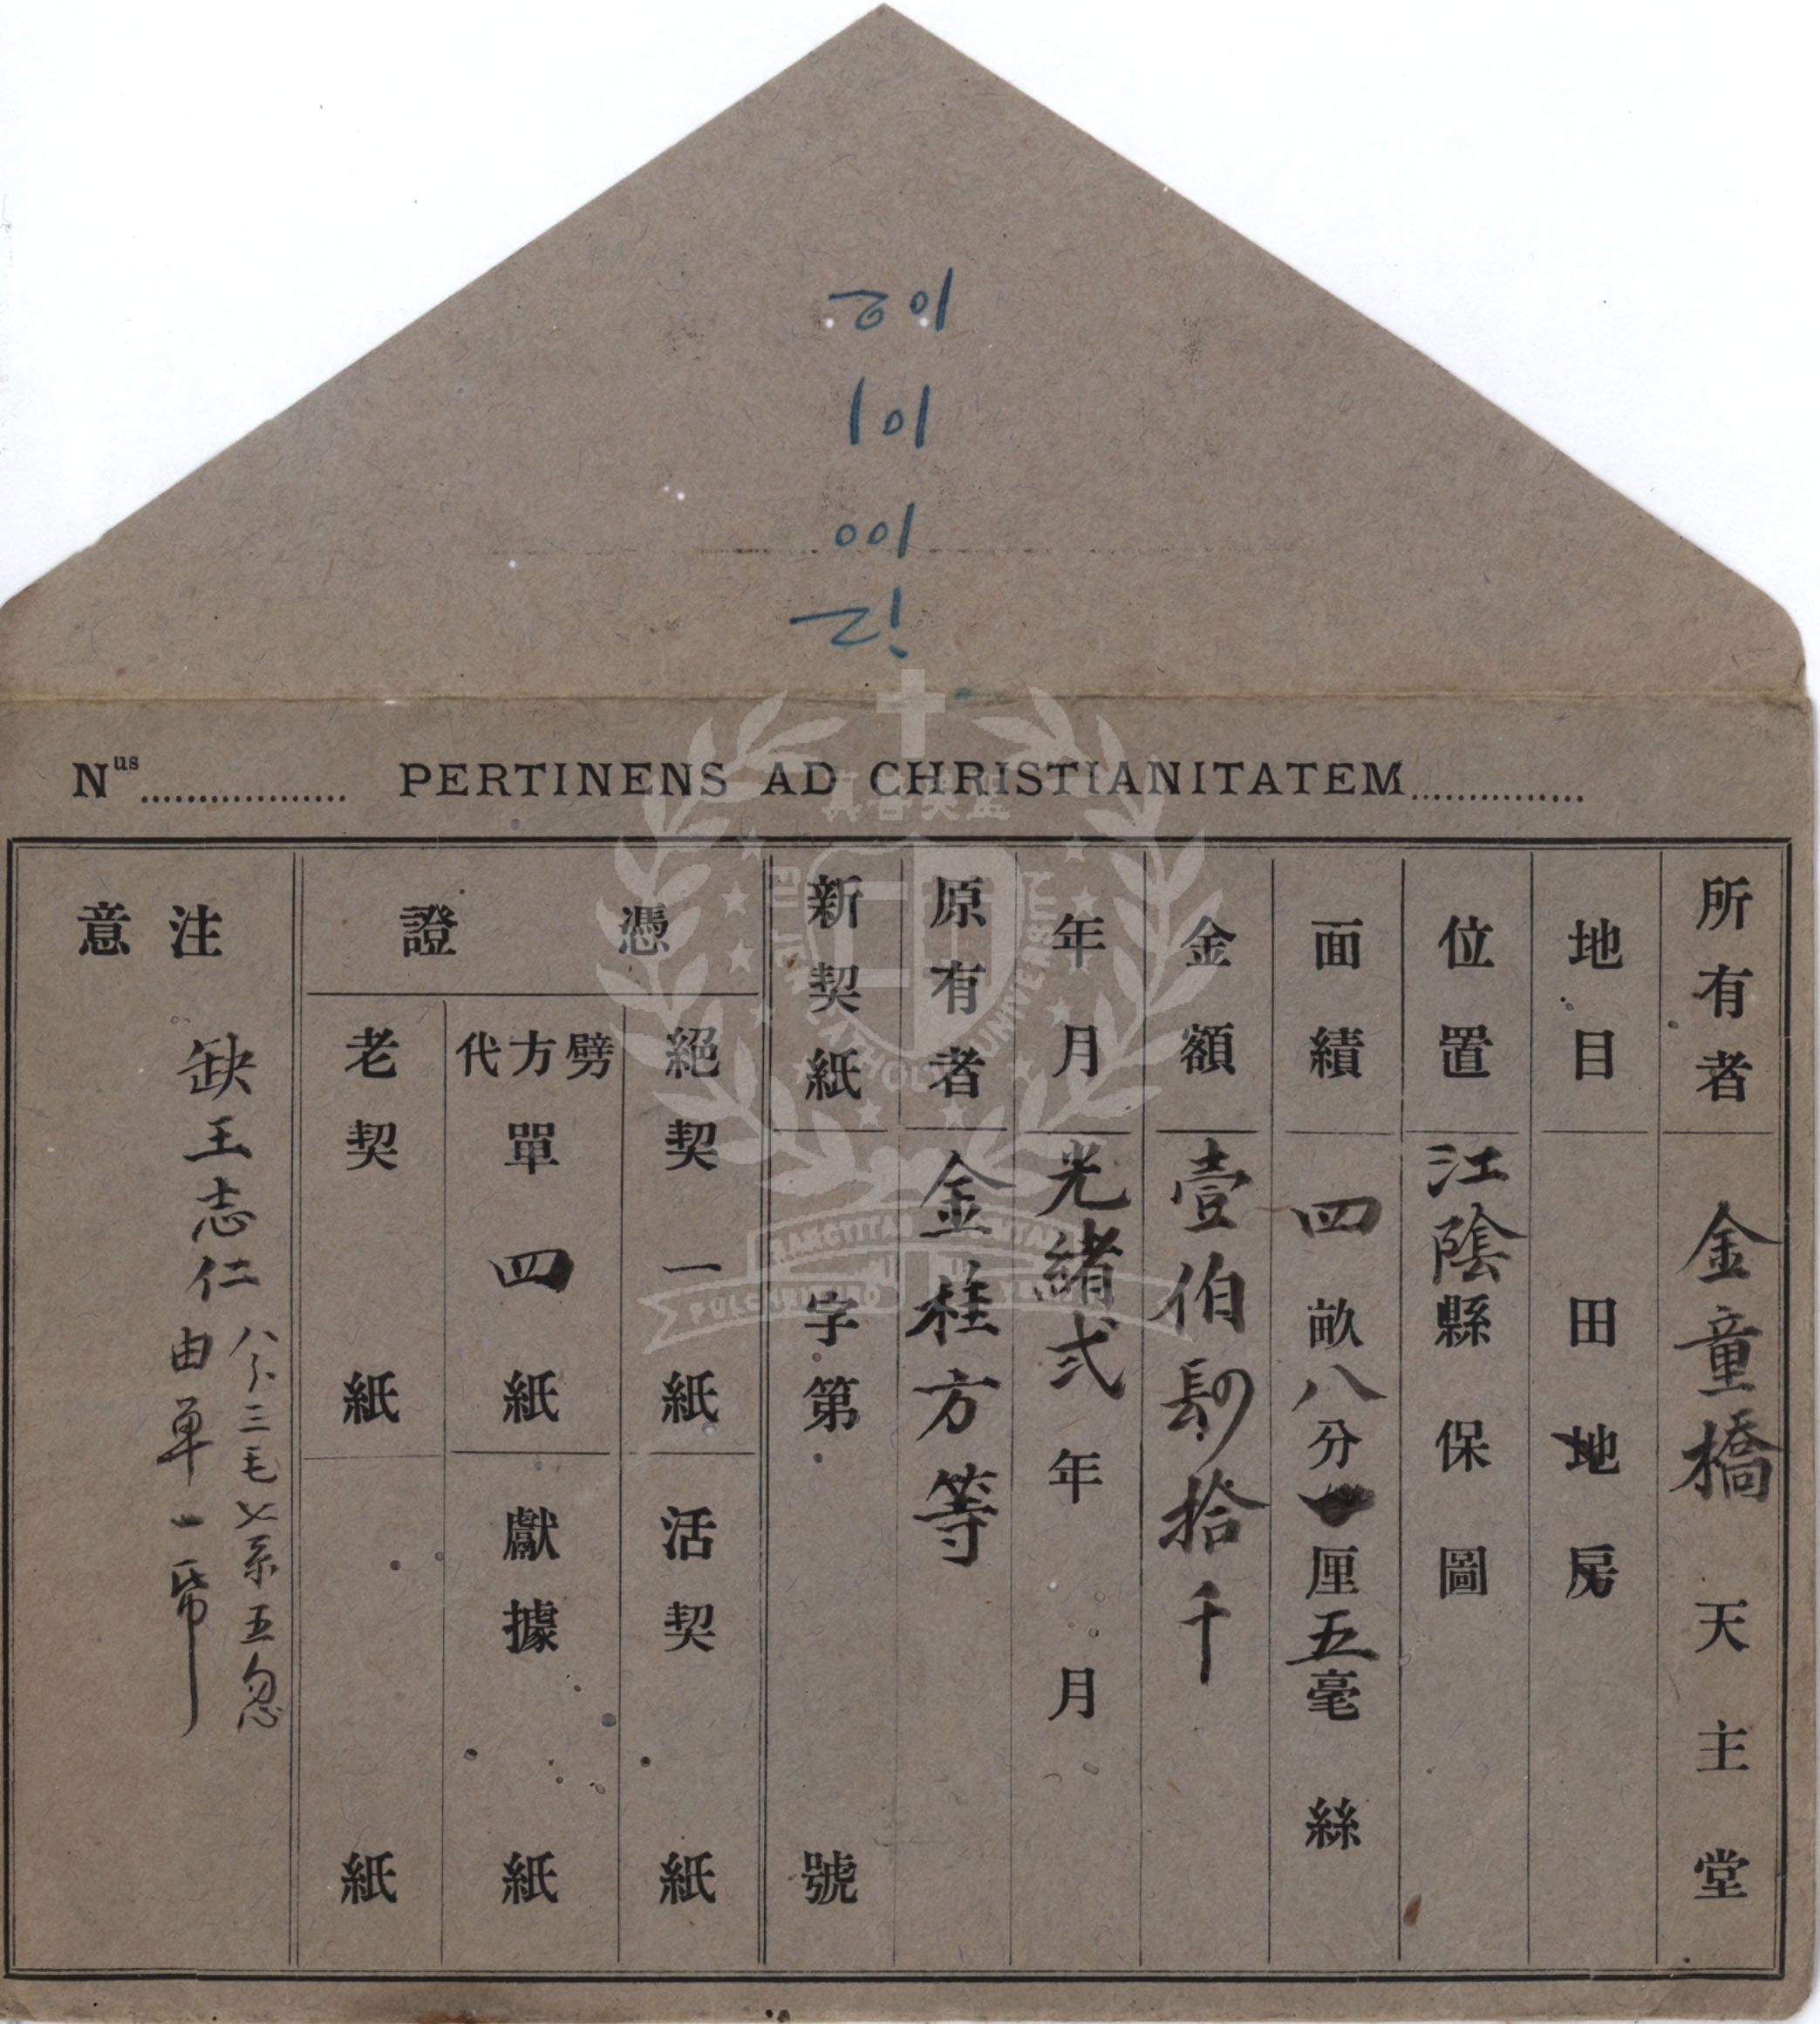 Nus ................ PERTINENS AD CHRISTIANITATEM ................
所有者 金童橋天主堂
地目 田地房
位置 江陰縣保圖
面績 四畝八分一厘五毫絲
金額 壹伯肆拾千
年月 光緒弍年月
原有者 金桂方等
新契紙 字第號
憑證
絕契一紙 活契紙
劈方代單四紙 獻據紙
老契紙 紙
注意
缺王志仁
八分三毛七系五忽
由單一帋